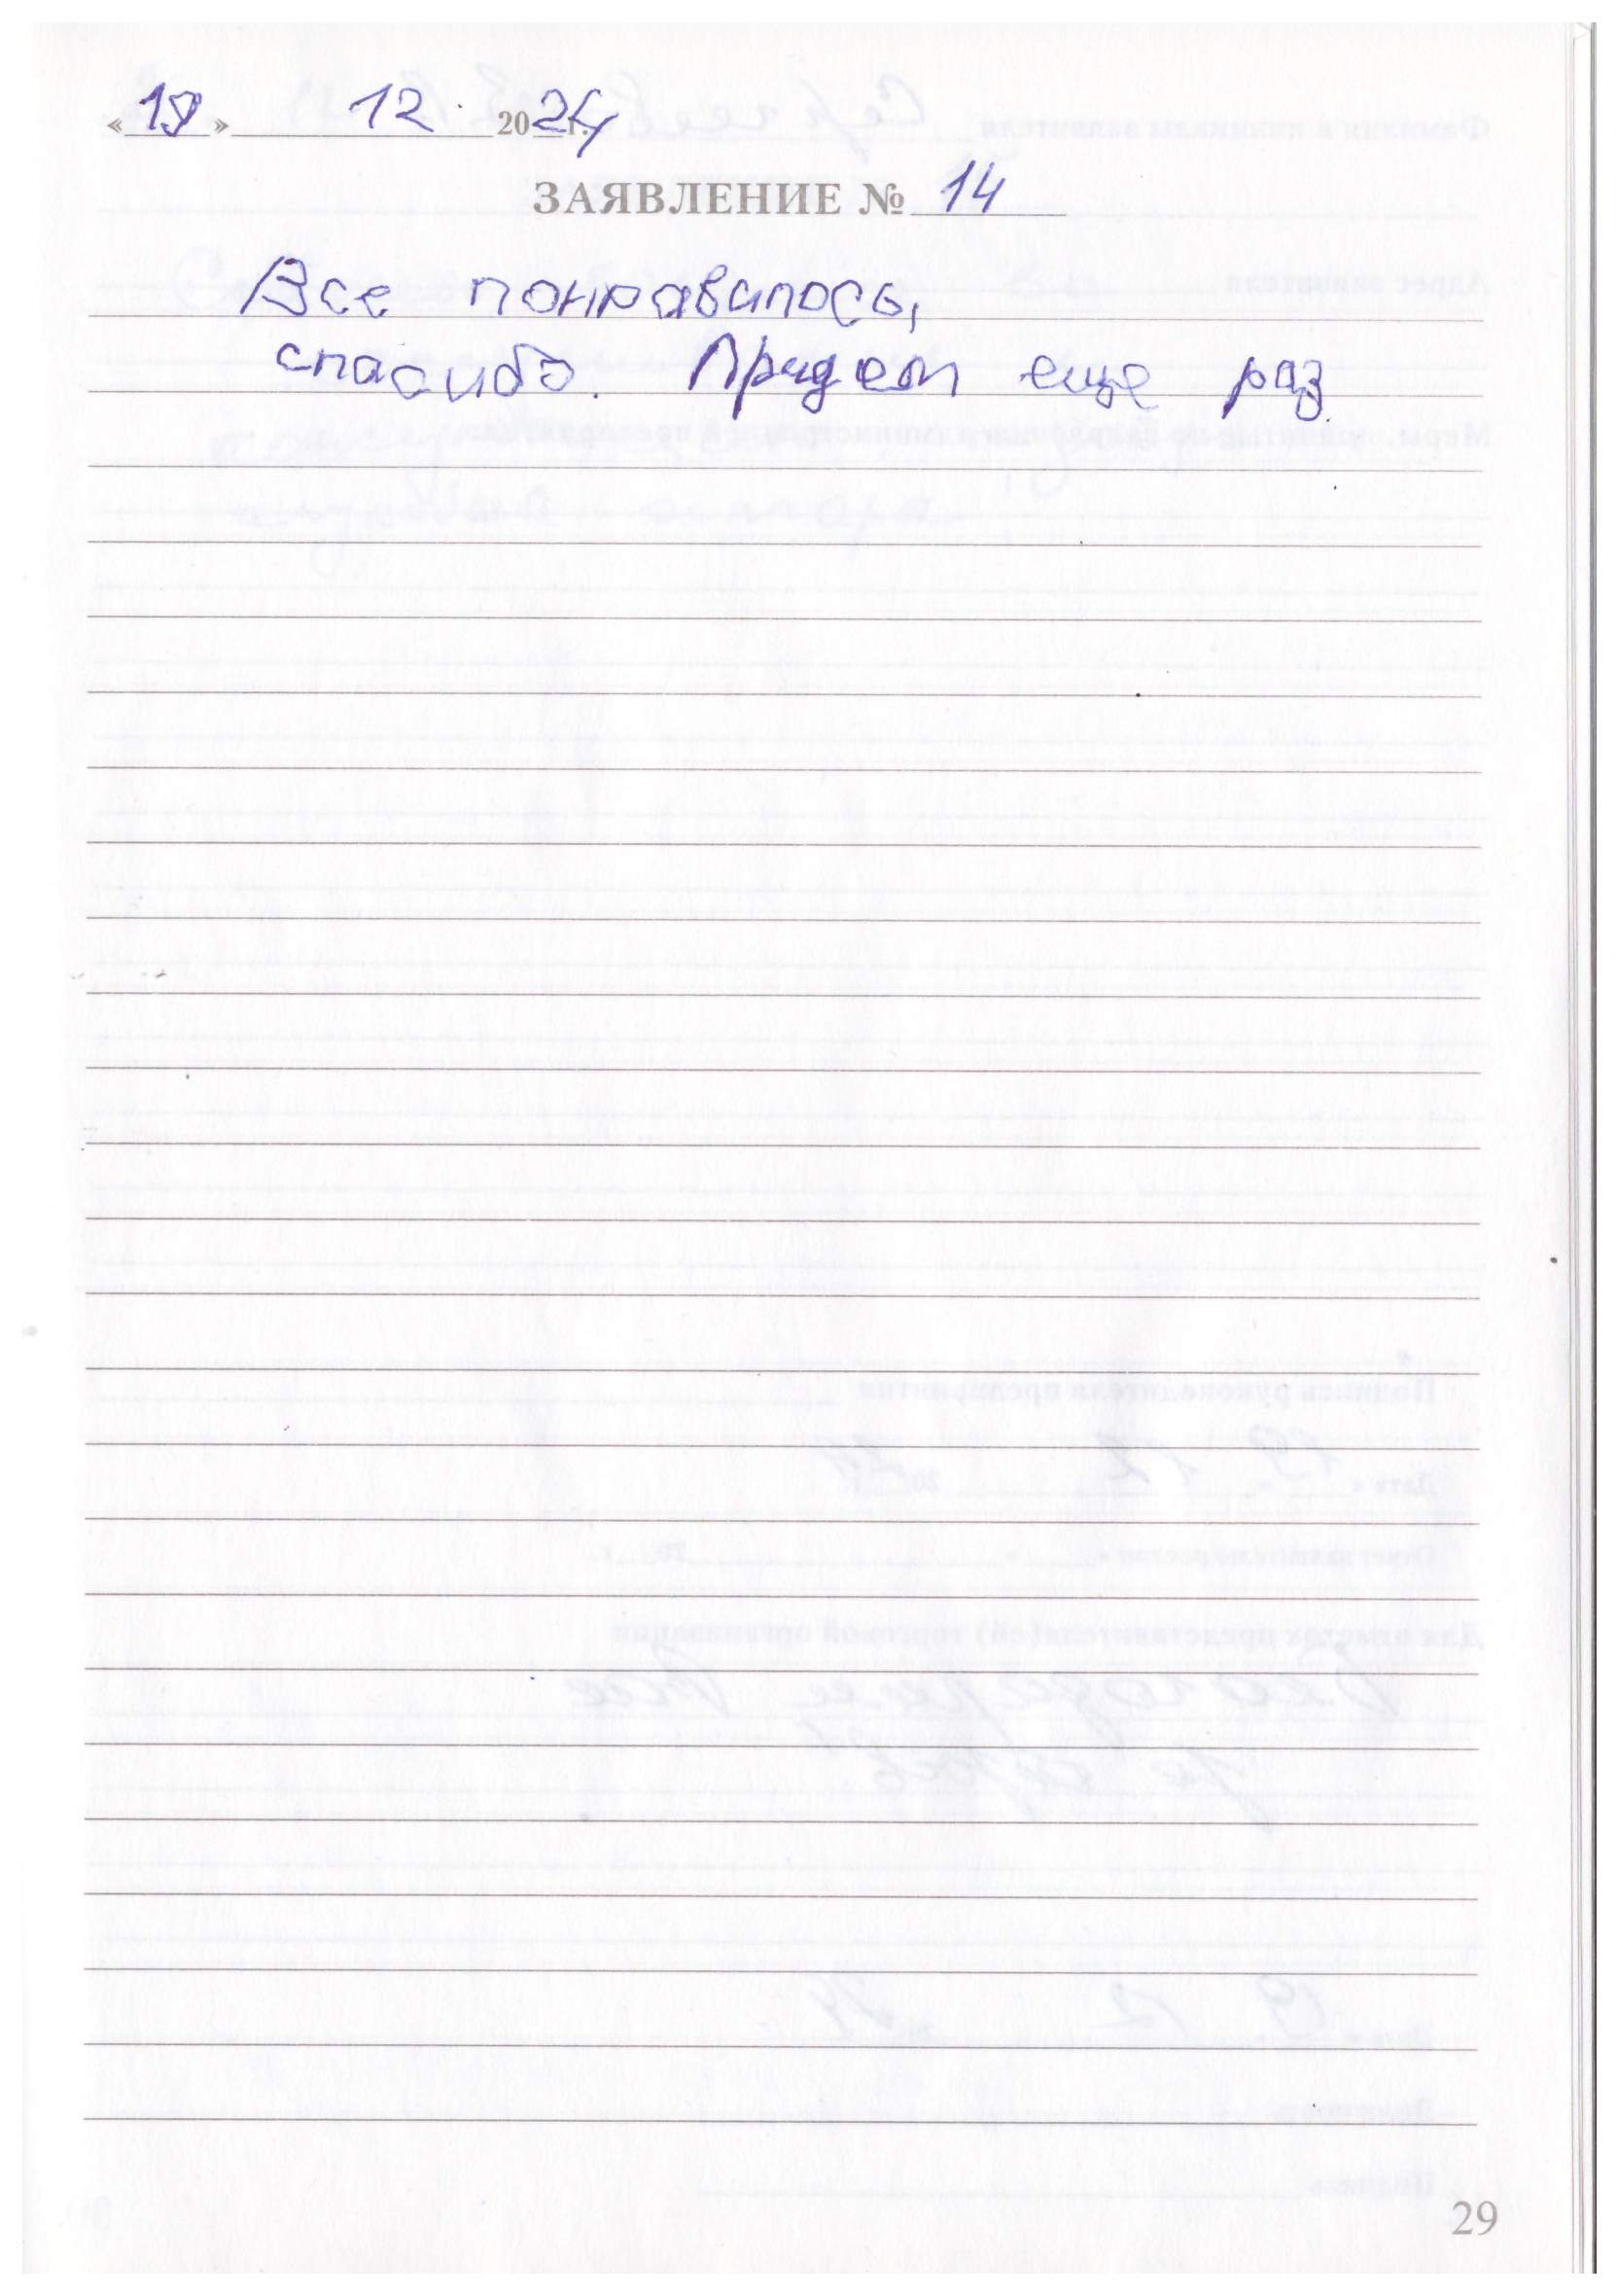 «19» 12 2024 г.
ЗАЯВЛЕНИЕ № 14
Все понравилось,
спасибо. Придем еще раз.
29